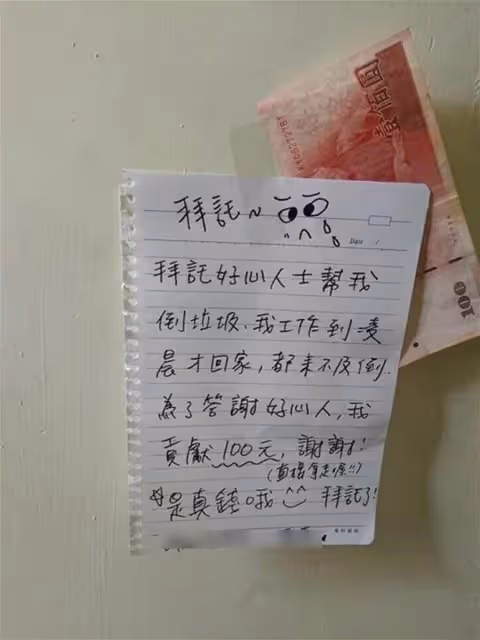 壹佰圓
100
拜託~
Date
拜託好心人士幫我
倒垃圾、我工作到凌
晨才回家，都來不及倒.
為了答謝好心人，我
貢獻100元，謝謝！
(直接拿走喔!!)
是真錢哦^^ 拜託了!